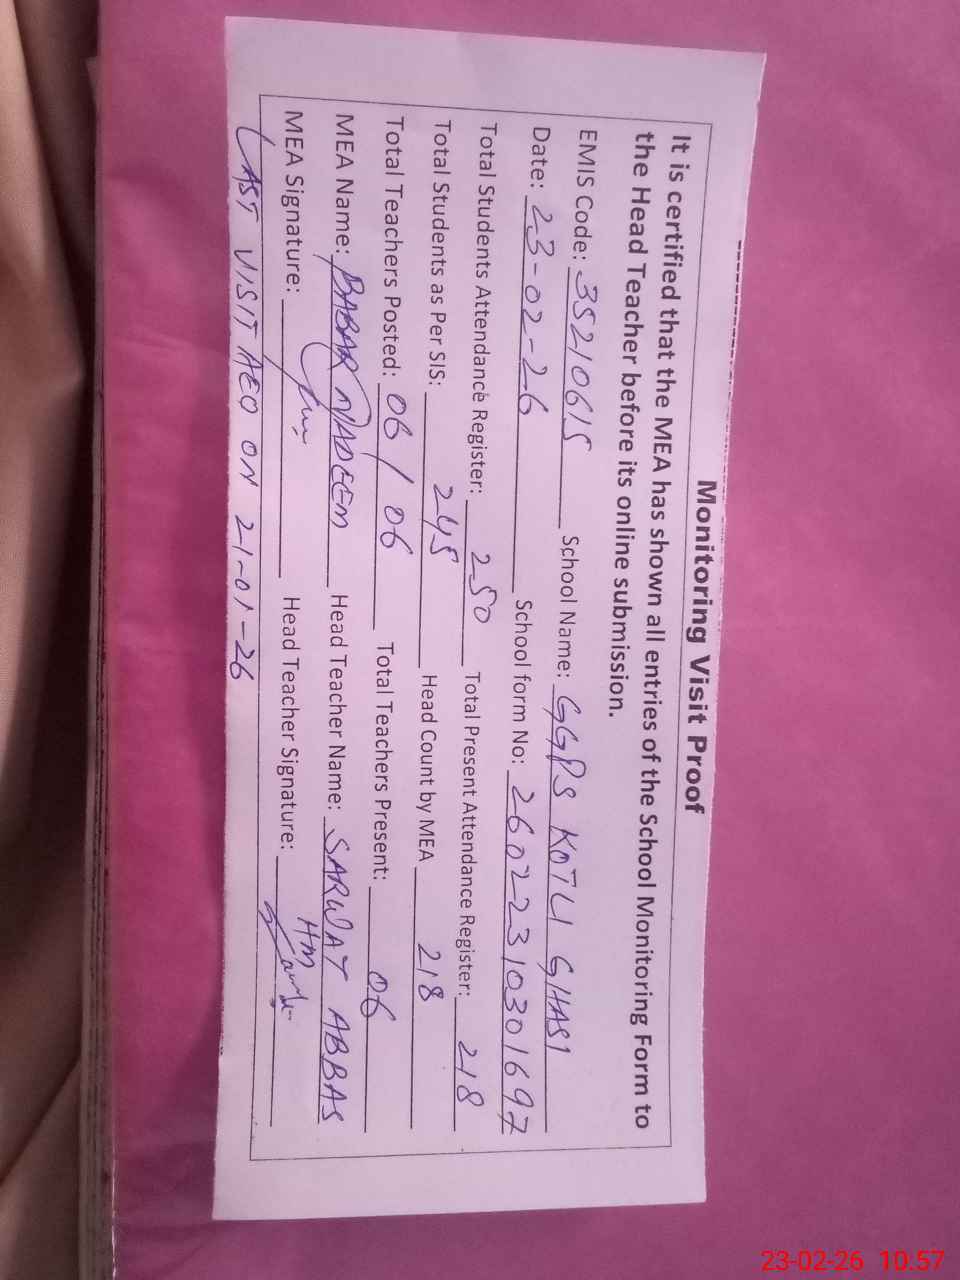 Monitoring Visit Proof
It is certified that the MEA has shown all entries of the School Monitoring Form to
the Head Teacher before its online submission.
EMIS Code: 35210615 School Name: GGPS KOTLI GHASI
Date: 23-02-26 School form No: 26022310301697
Total Students Attendance Register: 250 Total Present Attendance Register: 218
Total Students as Per SIS: 245 Head Count by MEA 218
Total Teachers Posted: 06 / 06 Total Teachers Present: 06
MEA Name: BABAR NADEEM Head Teacher Name: SARWAT ABBAS
MEA Signature: Head Teacher Signature: HM
LAST VISIT AEO ON 21-01-26
23-02-26 10.57